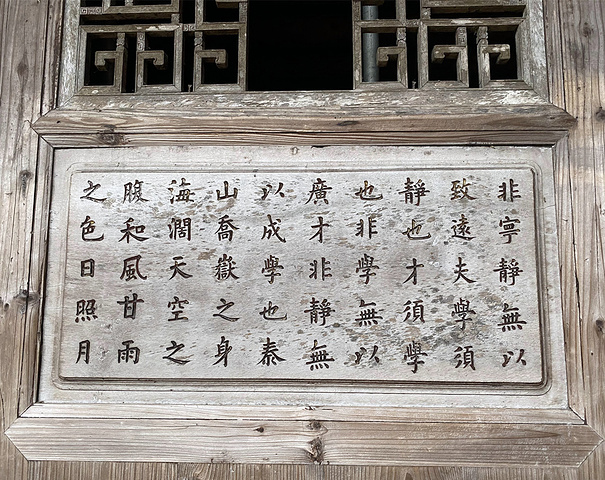 非寧靜無以
致遠夫學須
靜也才須學
也非學無以
廣才非靜無
以成學也泰
山喬嶽之身
海濶天空之
腹和風甘雨
之色日照月